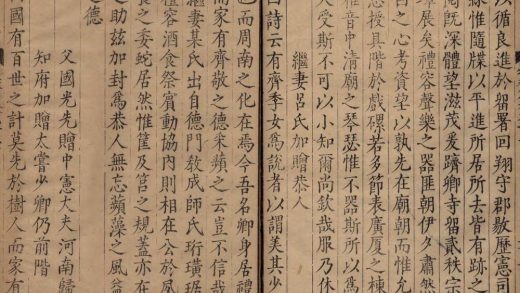 以循良進於留署回翔守郡敭歷憲司
緣惟隨牒以平進所居所去皆有跡之
周旣深體望滋茂爰躋卿寺留貳秩宗
展矣禮容聲樂之器匪朝伊夕肅然
之心考資望以孰先在廟朝而惟允
授具階於戲磥若多節表廣厦之棟
雅音中清廟之琴瑟惟不器斯所以爲
大受斯不可以小知爾尚欽哉服乃休
繼妻呂氏加贈恭人
曰詩云有齊季女爲說者以謂美其少
也而周南之化在焉今吾名卿身居禮
而家有齊敬之德釆蘋之云豈不信哉
繼妻某氏出自德門敎成師氏珩璜琚
禮容酒食祭賓動協内則相在公於夙
養之委蛇居然惟筐及筥之規蓋亦在
之助兹加封爲恭人無忘蘋藻之風益
德
父國光先贈中憲大夫河南歸
知府加贈太嘗少卿仍前階
國有百世之計莫先於樹人而家有